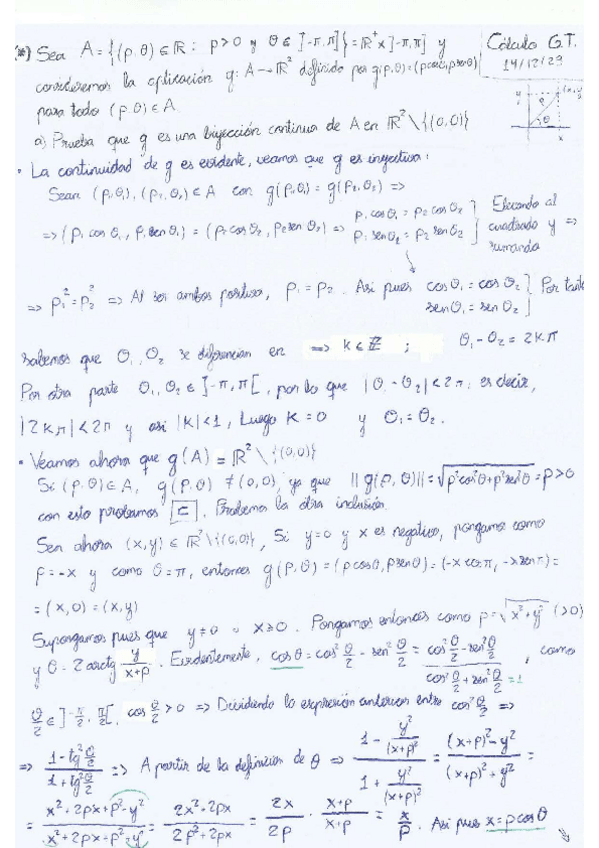 (*) Sea A = {(ρ,θ) ∈ ℝ : ρ>0 y θ ∈ ]-π,π]} = ℝ⁺x]-π,π] y
Cálculo G.T.
14/12/23
consideremos la aplicación g: A → ℝ² definida por g(ρ,θ) = (ρcosθ, ρsenθ)
para todo (ρ,θ) ∈ A
a) Prueba que g es una biyección continua de A en ℝ² \ {(0,0)}
• La continuidad de g es evidente, veamos que g es inyectiva:
Sean (ρ₁,θ₁), (ρ₂,θ₂) ∈ A con g(ρ₁,θ₁) = g(ρ₂,θ₂) =>
=> (ρ₁ cos θ₁, ρ₁ sen θ₁) = (ρ₂ cos θ₂, ρ₂ sen θ₂) => ρ₁ cos θ₁ = ρ₂ cos θ₂ ρ₁ sen θ₁ = ρ₂ sen θ₂ ] Elevando al cuadrado y sumando =>
=> ρ₁² = ρ₂² => Al ser ambos positivos, ρ₁ = ρ₂. Así pues cos θ₁ = cos θ₂ sen θ₁ = sen θ₂ ] Por tanto
sabemos que θ₁, θ₂ se diferencian en => k ∈ ℤ ; θ₁ - θ₂ = 2kπ
Por otra parte θ₁, θ₂ ∈ ]-π,π[, por lo que |θ₁ - θ₂| < 2π; es decir,
|2kπ| < 2π y así |k| < 1, Luego k = 0 y θ₁ = θ₂.
• Veamos ahora que g(A) = ℝ² \ {(0,0)}
Si (ρ,θ) ∈ A, g(ρ,θ) ≠ (0,0), ya que ||g(ρ,θ)|| = √ρ²cos²θ+ρ²sen²θ = ρ > 0
con esto probamos ⊂. Probemos la otra inclusión.
Sea ahora (x,y) ∈ ℝ² \ {(0,0)}, Si y=0 y x es negativo, pongamos como
ρ = -x y como θ = π, entonces g(ρ,θ) = (ρcosθ, ρsenθ) = (-x cosπ, -x senπ) =
= (x,0) = (x,y)
Supongamos pues que y ≠ 0 o x ≥ 0. Pongamos entonces como ρ = √x²+y² (>0)
y θ = 2 arctg y/(x+ρ). Evidentemente, cosθ = cos² θ/2 - sen² θ/2 = (cos² θ/2 - sen² θ/2)/(cos² θ/2 + sen² θ/2) =1, como
θ/2 ∈ ]-π/2, π/2[, cos θ/2 > 0 => Dividiendo la expresión anterior entre cos² θ/2 =>
=> (1 - tg² θ/2)/(1 + tg² θ/2) => A partir de la definición de θ => (1 - y²/(x+ρ)²)/(1 + y²/(x+ρ)²) = ((x+ρ)² - y²)/((x+ρ)² + y²) =
= (x² + 2ρx + ρ² - y²)/(x² + 2ρx + ρ² + y²) = (2x² + 2ρx)/(2ρ² + 2ρx) = 2x/2ρ · (x+ρ)/(x+ρ) = x/ρ. Así pues x = ρ cosθ